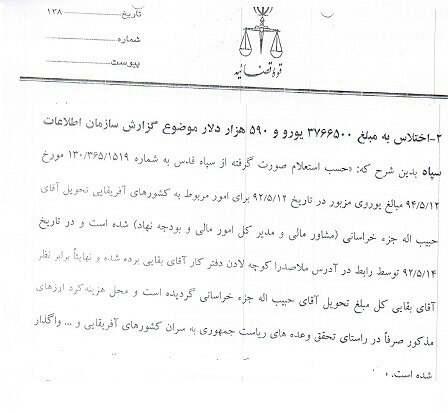 تاریخ ۱۳۸
شماره
پیوست
قوه قضائیه
۲-اختلاس به مبلغ ۳۷۶۶۵۰۰ یورو و ۵۹۰ هزار دلار موضوع گزارش سازمان اطلاعات
سپاه بدین شرح که: «حسب استعلام صورت گرفته از سپاه قدس به شماره ۱۳۰/۳۶۵/۱۵۱۹ مورخ
۹۴/۵/۱۲ مبالغ یوروی مزبور در تاریخ ۹۲/۵/۱۲ برای امور مربوط به کشورهای آفریقایی تحویل آقای
حبیب اله جزء خراسانی (مشاور مالی و مدیر کل امور مالی و بودجه نهاد) شده است و در تاریخ
۹۲/۵/۱۴ توسط رابط در آدرس ملاصدرا کوچه لادن دفتر کار آقای بقایی برده شده و نهایتاً برابر نظر
آقای بقایی کل مبلغ تحویل آقای حبیب اله جزء خراسانی گردیده است و محل هزینه کرد ارزهای
مذکور صرفاً در راستای تحقق وعده های ریاست جمهوری به سران کشورهای آفریقایی و ... واگذار
شده است.